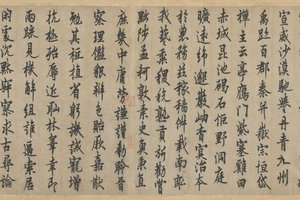 宣威沙漠馳譽丹青九州
禹跡百郡秦并嶽宗恒岱
禪主云亭鴈門紫塞雞田
赤城昆池碣石鉅野洞庭
曠遠綿邈巖岫杳冥治本
於農務茲稼穡俶載南畝
我藝黍稷稅熟貢新勸賞
黜陟孟軻敦素史魚秉直
庶幾中庸勞謙謹勑聆音
察理鑑貌辨色貽厥嘉猷
勉其祗植省躬譏誡寵增
抗極殆辱近恥林皋幸即
兩疏見機解組誰逼索居
閑處沉默寂寥求古尋論